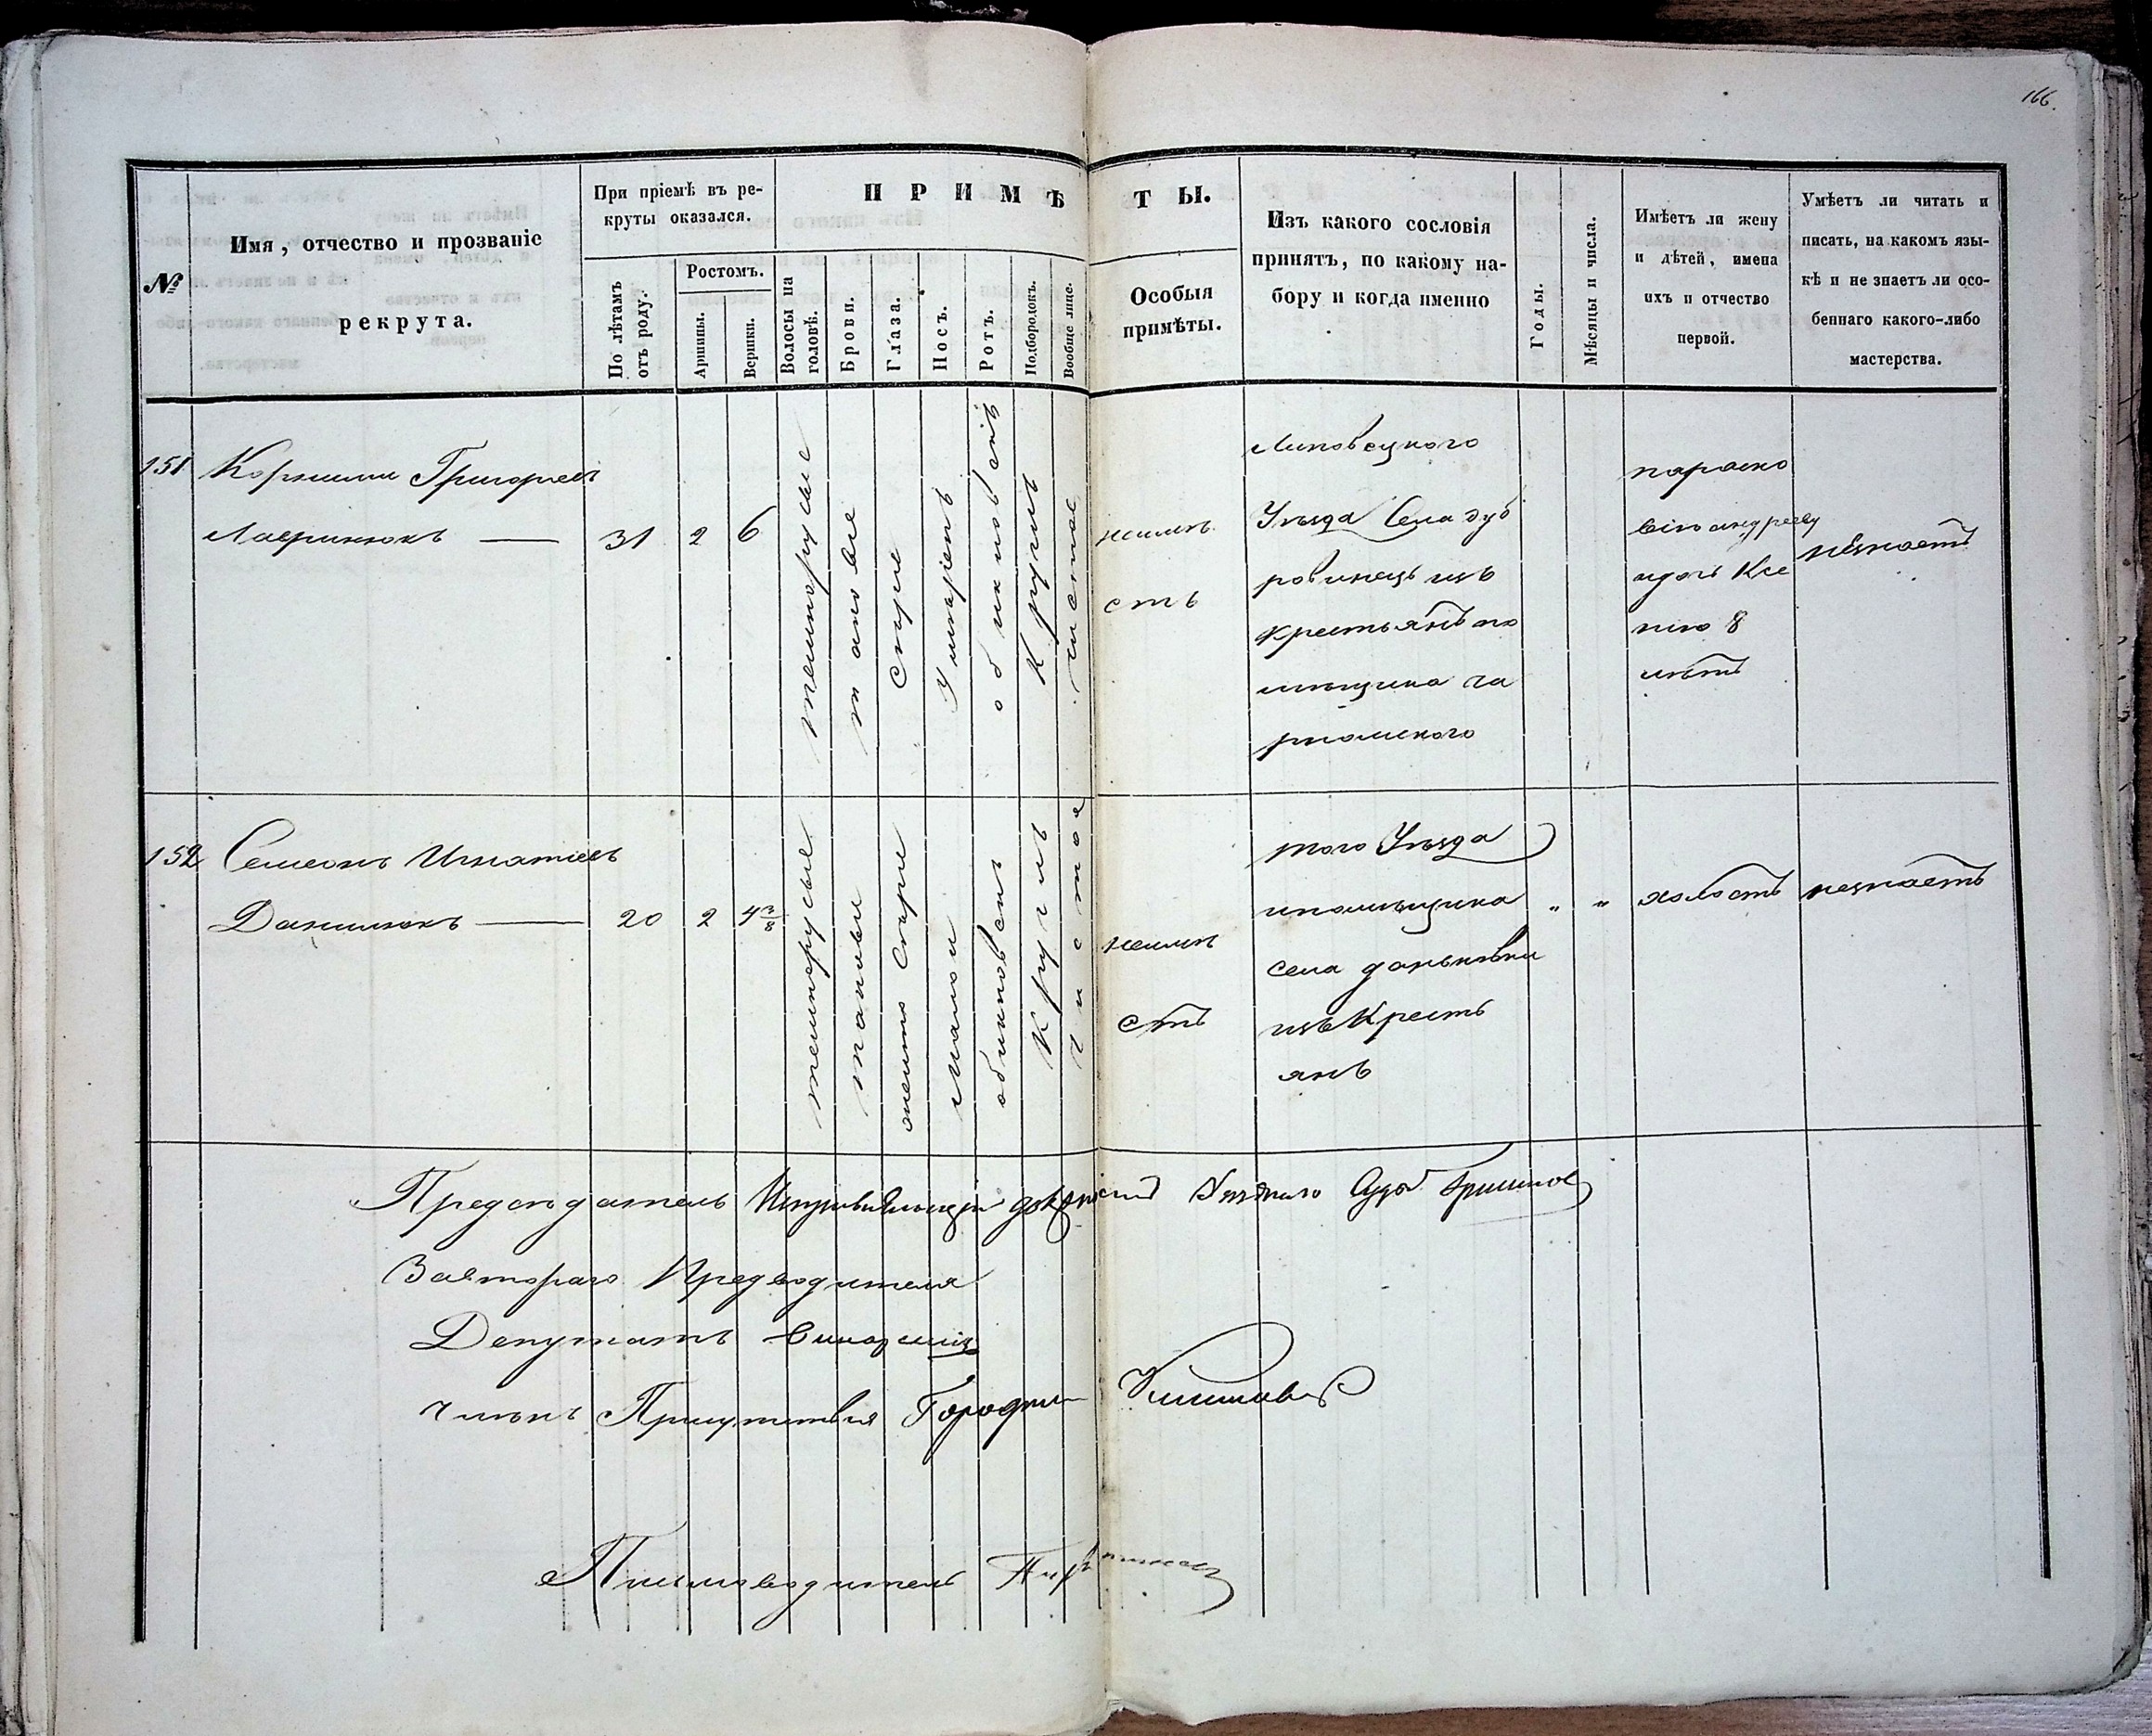 166.
№
Имя, отчество и прозваніе
рекрута.
При пріемѣ въ ре-
круты оказался.
По лѣтамъ
отъ роду.
Ростомъ.
Аршины.
Вершки.
ПРИМѢТЫ.
Волосы на
головѣ.
Брови.
Глаза.
Носъ.
Ротъ.
Подбородокъ.
Вообще лице.
Особыя
примѣты.
Изъ какого сословія
принятъ, по какому на-
бору и когда именно
Годы.
Мѣсяцы и числа.
Имѣетъ ли жену
и дѣтей, имена
ихъ и отчество
первой.
Умѣетъ ли читать и
писать, на какомъ язы-
кѣ и не знаетъ ли осо-
беннаго какого-либо
мастерства.
151
Корнилий Григорьев
Лавринюкъ
31
2
6
темнорусые
такове
Серые
Умѣрен
обикновенъ
Круглъ
чистое
неимѣ
етъ
Липовецкого
Уѣзда Села дуб
ровинець изъ
крестьянъ по
мѣщика
параско
вію андрееву
идочь Ксе
нию 8
лѣтъ
незнаетъ
152
Семеонъ Игнатіевъ
Данилюкъ
20
2
4 3/8
темнорусые
такови
желто Серые
Малои
обикновенъ
Круглъ
Чистое
неимѣ
етъ
того Уѣзда
ипомѣщика
села даньковки
изъ Кресть
янъ
„ „
холостъ
незнаетъ
Предсѣдатель Уѣзднаго Суда
Завтораго Предводителя
Депутатъ
Членъ Присутствія Городни
Письмоводитель